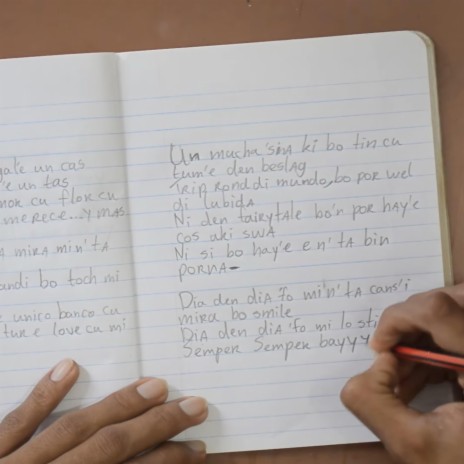 gale un cas
'e un tas
mor cu flor cu
merece...y mas
mira min'ta
andi bo toch mi
e unico banco cu
tur e love cu mi
Un mucha sina ki bo tin cu
tum'e den beslag
Trip rond di mundo, bo por wel
di lubida
Ni den fairytale bo'n por hay'e
cos aki swa
Ni si bo hay'e e n'ta bin
porna-
Dia den dia 'fo mi'n'ta cans'i
mira bo smile
Dia den dia 'fo mi lo sti
Semper Semper bayyy